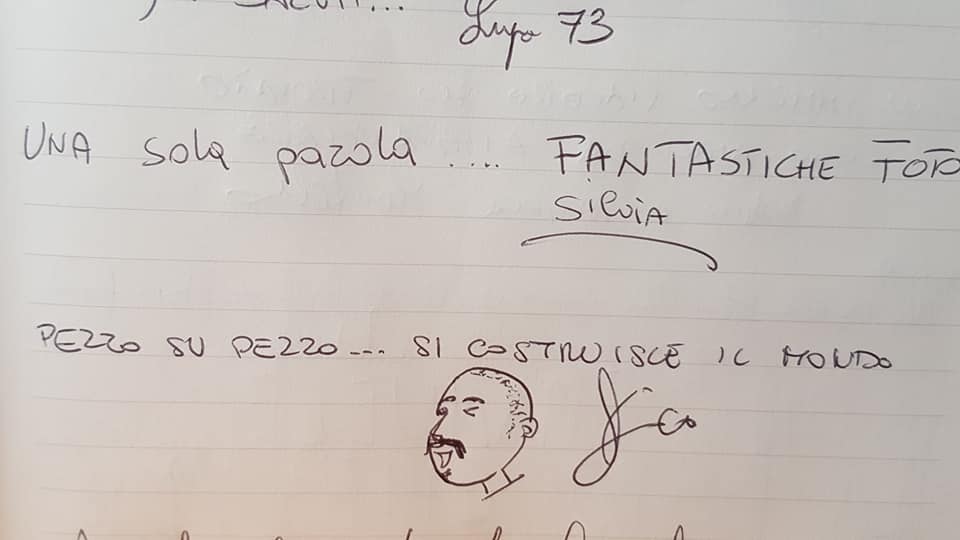 SALUTI...
Lupo 73
UNA sola parola .... FANTASTICHE FOTO
Silvia
PEZZO SU PEZZO... SI COSTRUISCE IL MONDO